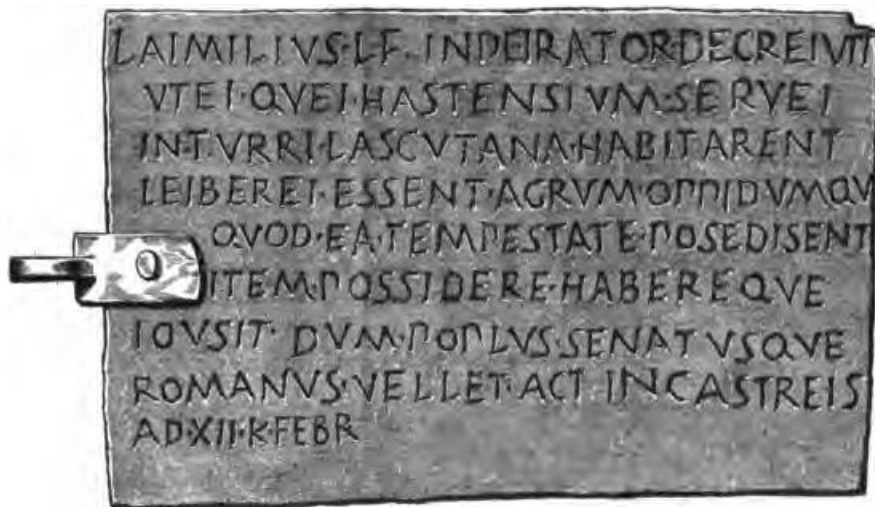 L·AIMILIVS·L·F·INPEIRATOR·DECREIVIT
VTEI·QVEI·HASTENSIVM·SERVEI
IN·TVRRI·LASCVTANA·HABITARENT
LEIBEREI·ESSENT·AGRVM·OPPIDVMQV
QVOD·EA·TEMPESTATE·POSEDISENT
ITEM·POSSIDERE·HABEREQVE
IOVSIT·DVM·POPLVS·SENATVSQVE
ROMANVS·VELLET·ACT·IN CASTREIS
A·D·XII·K·FEBR